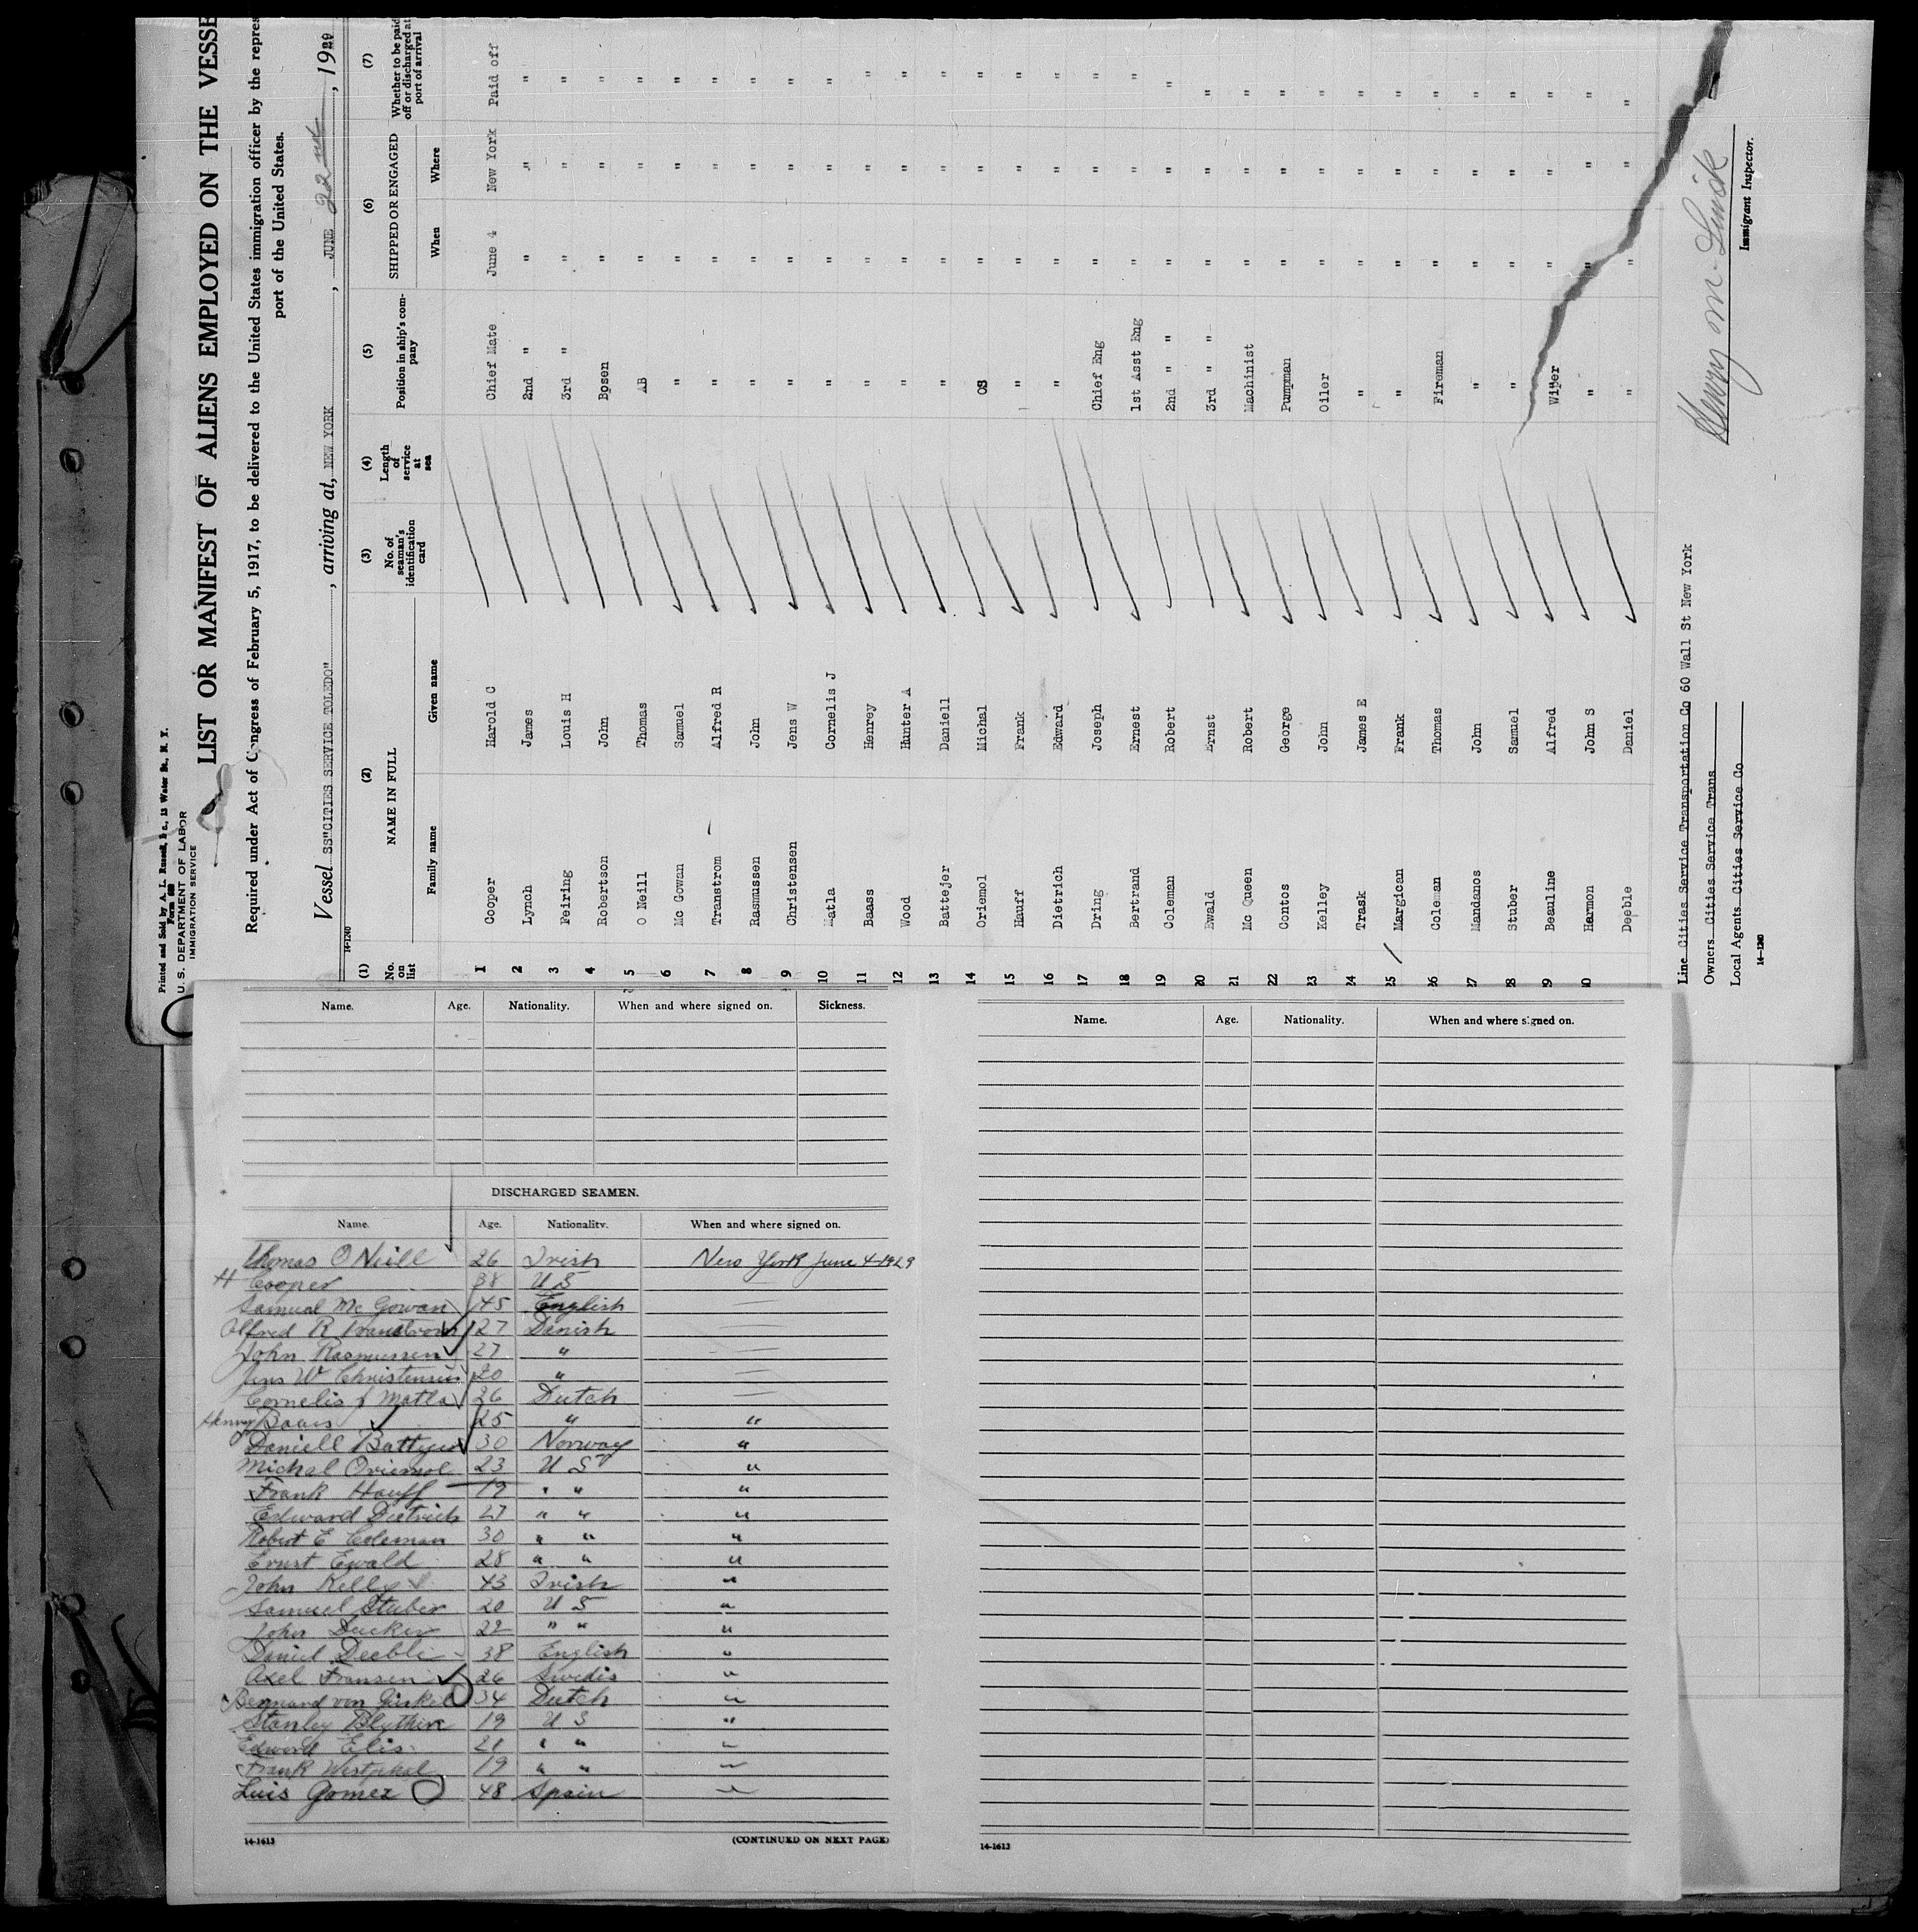 Printed and Sold by A. L. Russell, Inc., 13 Water St., N. Y.
U. S. DEPARTMENT OF LABOR
IMMIGRATION SERVICE
LIST OR MANIFEST OF ALIENS EMPLOYED ON THE VESSE
Required under Act of Congress of February 5, 1917, to be delivered to the United States immigration officer by the repres
port of the United States.
Vessel SS"CITIES SERVICE TOLEDO", arriving at, NEW YORK, JUNE 22nd, 1929
14-1240
(1) (2) (3) (4) (5) (6) (7)
No. on list NAME IN FULL No. of seaman's identification card Length of service at sea Position in ship's company SHIPPED OR ENGAGED Whether to be paid off or discharged at port of arrival
Family name Given name When Where
1 Cooper Harold C Chief Mate June 4 New York Paid off
2 Lynch James 2nd " " " "
3 Feiring Louis H 3rd " " " "
4 Robertson John Bosen " " "
5 O Neill Thomas AB " " "
6 Mc Gowan Samuel " " " "
7 Transtrom Alfred R " " " "
8 Rasmussen John " " " "
9 Christensen Jens W " " " "
10 Matla Cornelis J " " " "
11 Baass Henrey " " " "
12 Wood Hunter A " " " "
13 Battejer Daniell " " " "
14 Oriemol Michal OS " " "
15 Hauff Frank " " " "
16 Dietrich Edward " " " "
17 Dring Joseph Chief Eng " " "
18 Bertrand Ernest 1st Asst Eng " " "
19 Coleman Robert 2nd " " " " "
20 Ewald Ernst 3rd " " " " "
21 Mc Queen Robert Machinist " " "
22 Contos George Pumpman " " "
23 Kelley John Oiler " " "
24 Trask James E " " " "
25 Margican Frank " " " "
26 Coleman Thomas Fireman " " "
27 Mandanos John " " " "
28 Stuber Samuel " " " "
29 Beauline Alfred Wiper " " "
30 Harmon John S " " " "
Deeble Daniel " " " "
Line Cities Service Transportation Co 60 Wall St New York
Owners Cities Service Trans
Local Agents Cities Service Co
14-1240
Immigrant Inspector.
Name. Age. Nationality. When and where signed on. Sickness.
DISCHARGED SEAMEN.
Name. Age. Nationality. When and where signed on.
Thomas O Neill 26 Irish New York June 4-1929
H Cooper 38 U S
Samuel Mc Gowan 45 English
Alfred R Transtrom 27 Danish
John Rasmussen 27 "
Jens W Christensen 20 "
Cornelis J Matla 26 Dutch
Henry Baais 25 " "
Daniell Battyer 30 Norway "
Michal Oriemol 23 U S "
Frank Hauff 19 " " "
Edward Dietrich 27 " " "
Robert E Coleman 30 " " "
Ernst Ewald 28 " " "
John Kelly 43 Irish "
Samuel Stuber 20 U S "
John Ducker 22 " " "
Daniel Deeble 38 English "
Axel Fransen 26 Swedis "
Bernard von Ginkel 34 Dutch "
Stanley Blythin 19 U S "
Edward Elis 21 " " "
Frank Westphal 19 " " "
Luis Gomez 48 Spain "
14-1613
(CONTINUED ON NEXT PAGE)
Name. Age. Nationality. When and where signed on.
14-1613